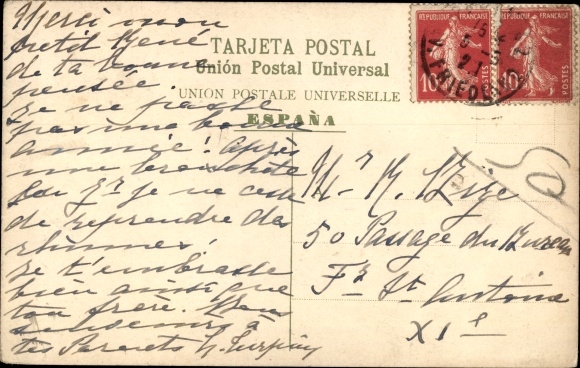 Merci mon
petit René
de ta bonne
pensée
je ne
pas une bonne
année! Après
une
je ne cesse
de reprendre des
rhumes!
je t'embrasse
bien ainsi que
ton frère.
à
tes Parents
TARJETA POSTAL
Unión Postal Universal
UNION POSTALE UNIVERSELLE
ESPAÑA
REPUBLIQUE FRANÇAISE
10
POSTES
REPUBLIQUE FRANÇAISE
10
POSTES
Mr R.
50 Passage du Bureau
Fg St Antoine
XIe